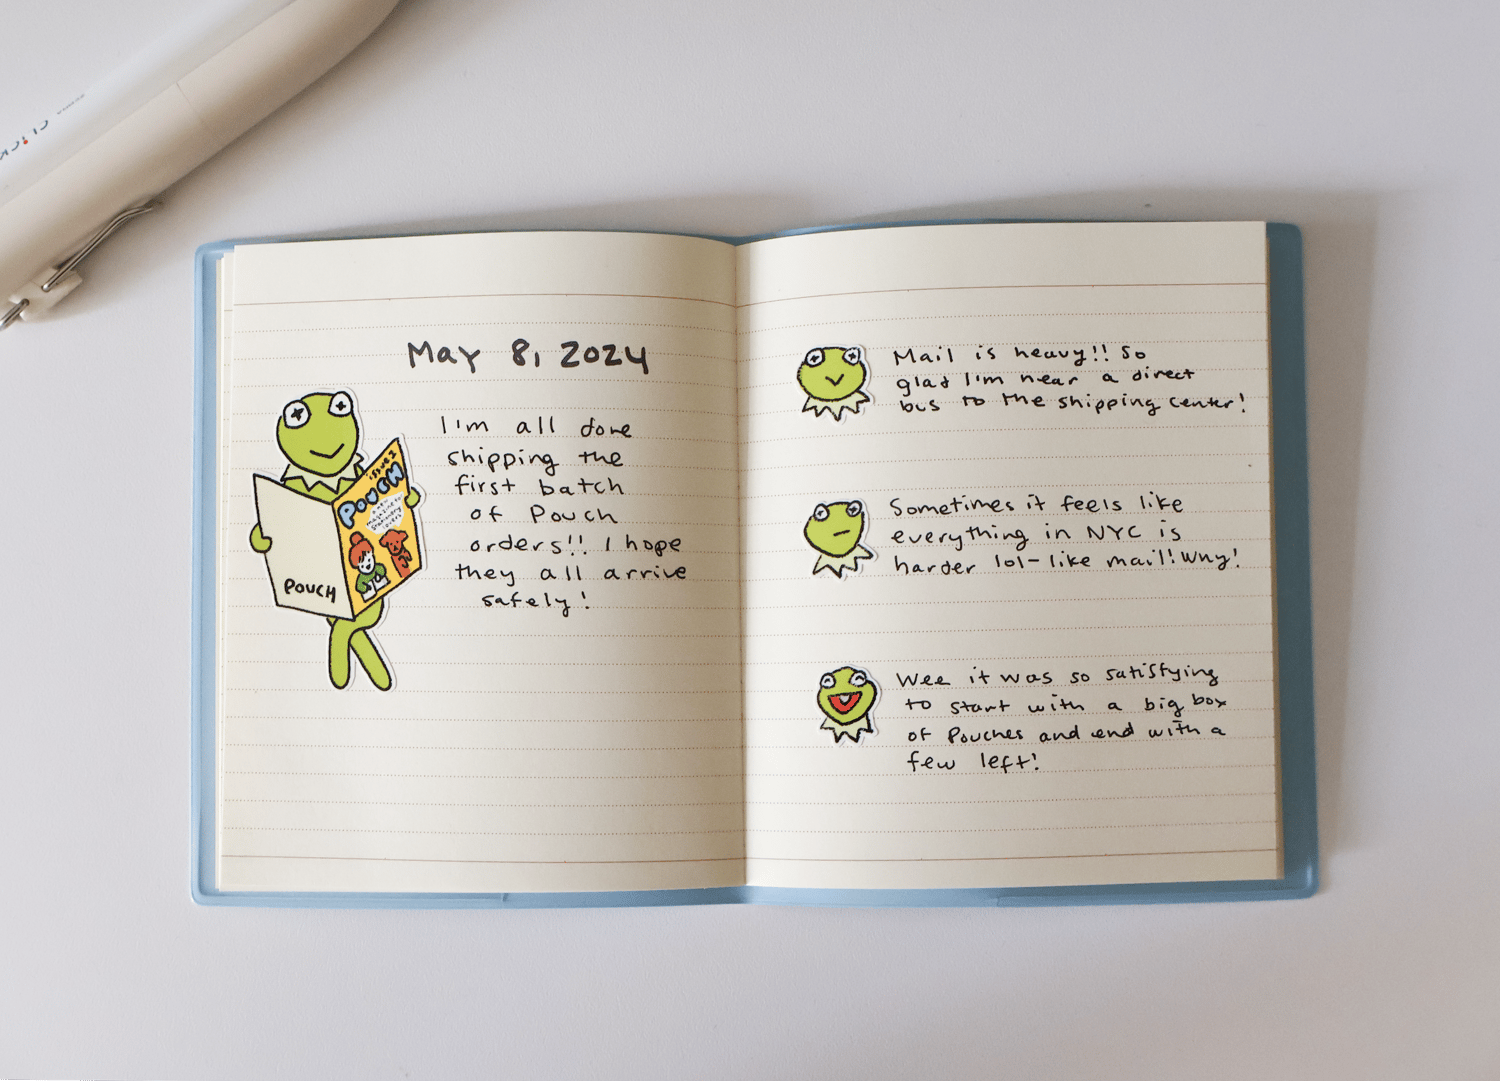 CLiCK
May 8, 2024
I'm all done
shipping the
first batch
of Pouch
orders!! I hope
they all arrive
safely!
POUCH
issue 1
POUCH
a new
magazine for
stationery
lovers
Mail is heavy!! So
glad I'm near a direct
bus to the shipping center!
Sometimes it feels like
everything in NYC is
harder lol-like mail! Why!
Wee it was so satisfying
to start with a big box
of Pouches and end with a
few left!